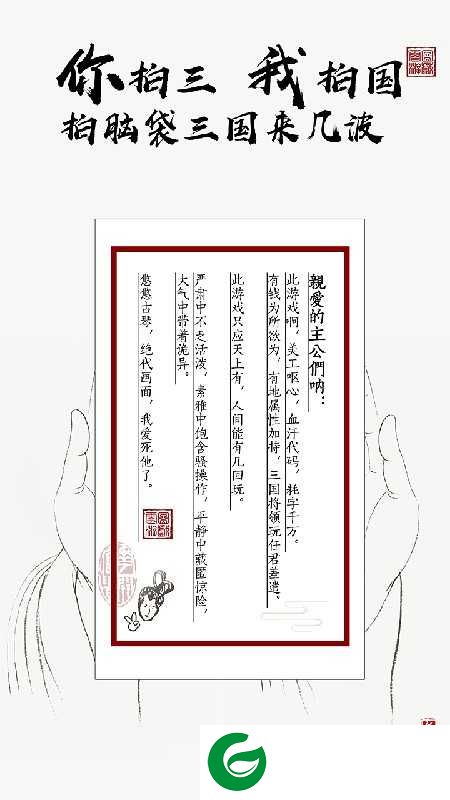 你拍三 我拍国
拍脑袋三国来几波
親愛的主公們呐：
此游戏啊，美工呕心，血汗代码，耗字千万。
有钱为所欲为，有地属性加持，三国将领玩任君差遣。
此游戏只应天上有，人间能有几回玩。
严肃中不乏活泼，素雅中饱含骚操作，平静中藏匿惊险，
大气中带着诡异。
悠悠古琴，绝代画面，我爱死他了。